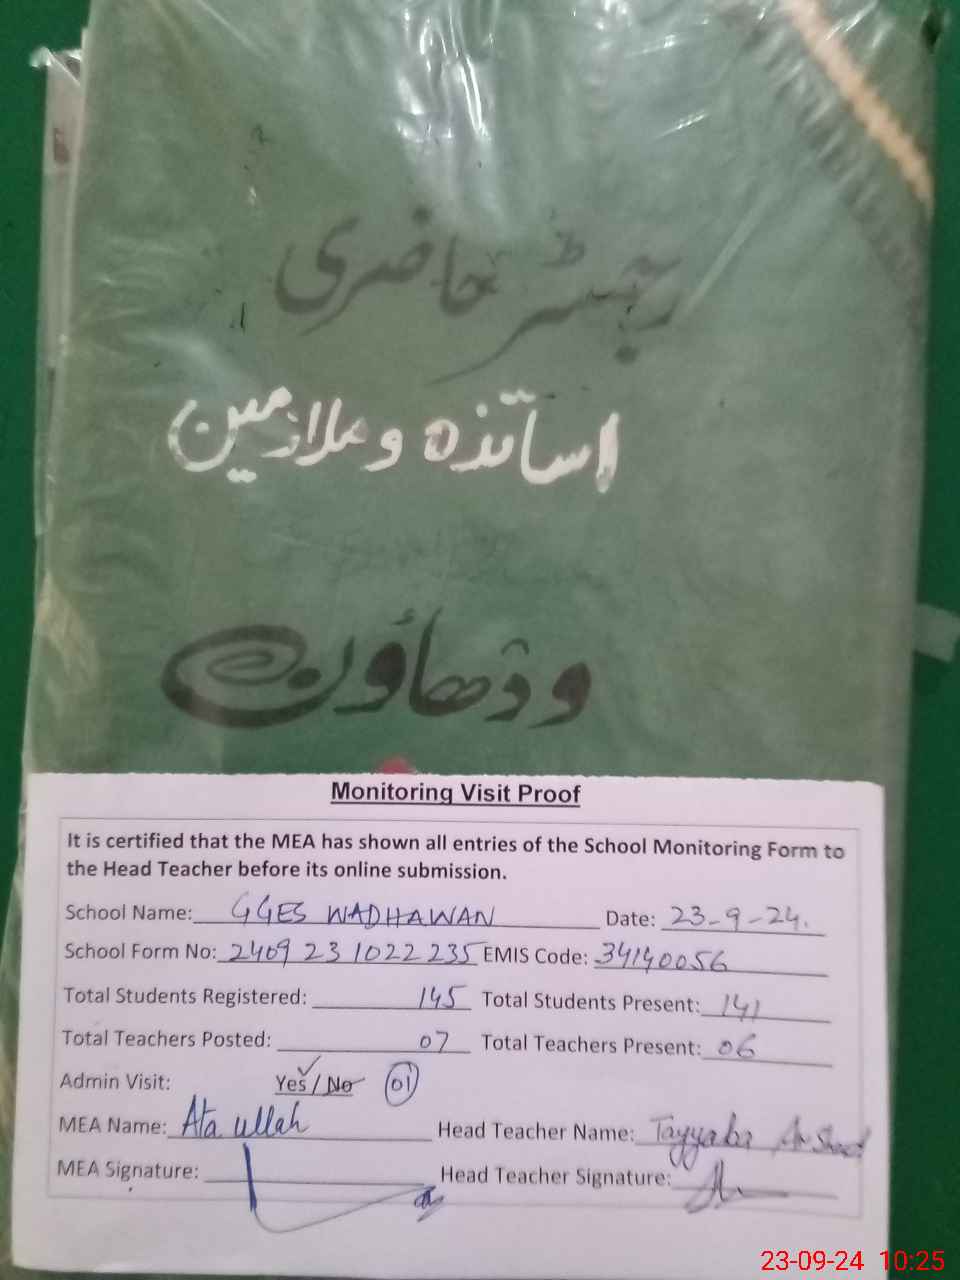 رجسٹر حاضری
اساتذہ و ملازمین
ودھاؤن
Monitoring Visit Proof
It is certified that the MEA has shown all entries of the School Monitoring Form to
the Head Teacher before its online submission.
School Name: GGES WADHAWAN Date: 23-9-24.
School Form No: 2409 23 1022 235 EMIS Code: 34140056
Total Students Registered: 145 Total Students Present: 141
Total Teachers Posted: 07 Total Teachers Present: 06
Admin Visit: Yes / No 01
MEA Name: Ata ullah Head Teacher Name: Tayyaba Arshad
MEA Signature: Head Teacher Signature:
23-09-24 10:25